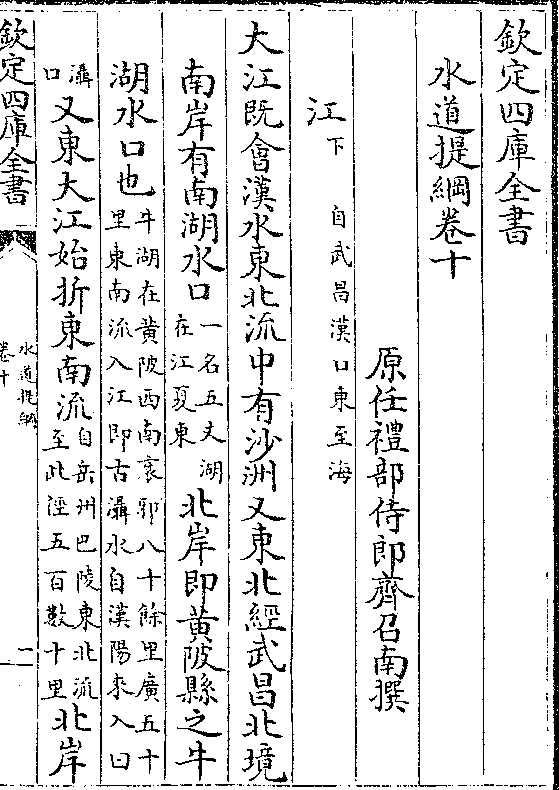 欽定四庫全書
水道提綱卷十
原任禮部侍郎齊召南撰
江下 自武昌漢口東至海
大江既會漢水東北流中有沙洲又東北經武昌北境
南岸有南湖水口一名五丈湖在江夏東北岸即黃陂縣之牛
湖水口也牛湖在黃陂西南袤郭八十餘里廣五十里東南流入江即古灄水自漢陽來入曰
灄口又東大江始折東南流自岳州巴陵東北流至此徑五百數十里北岸
欽定四庫全書
水道提綱
卷十
一